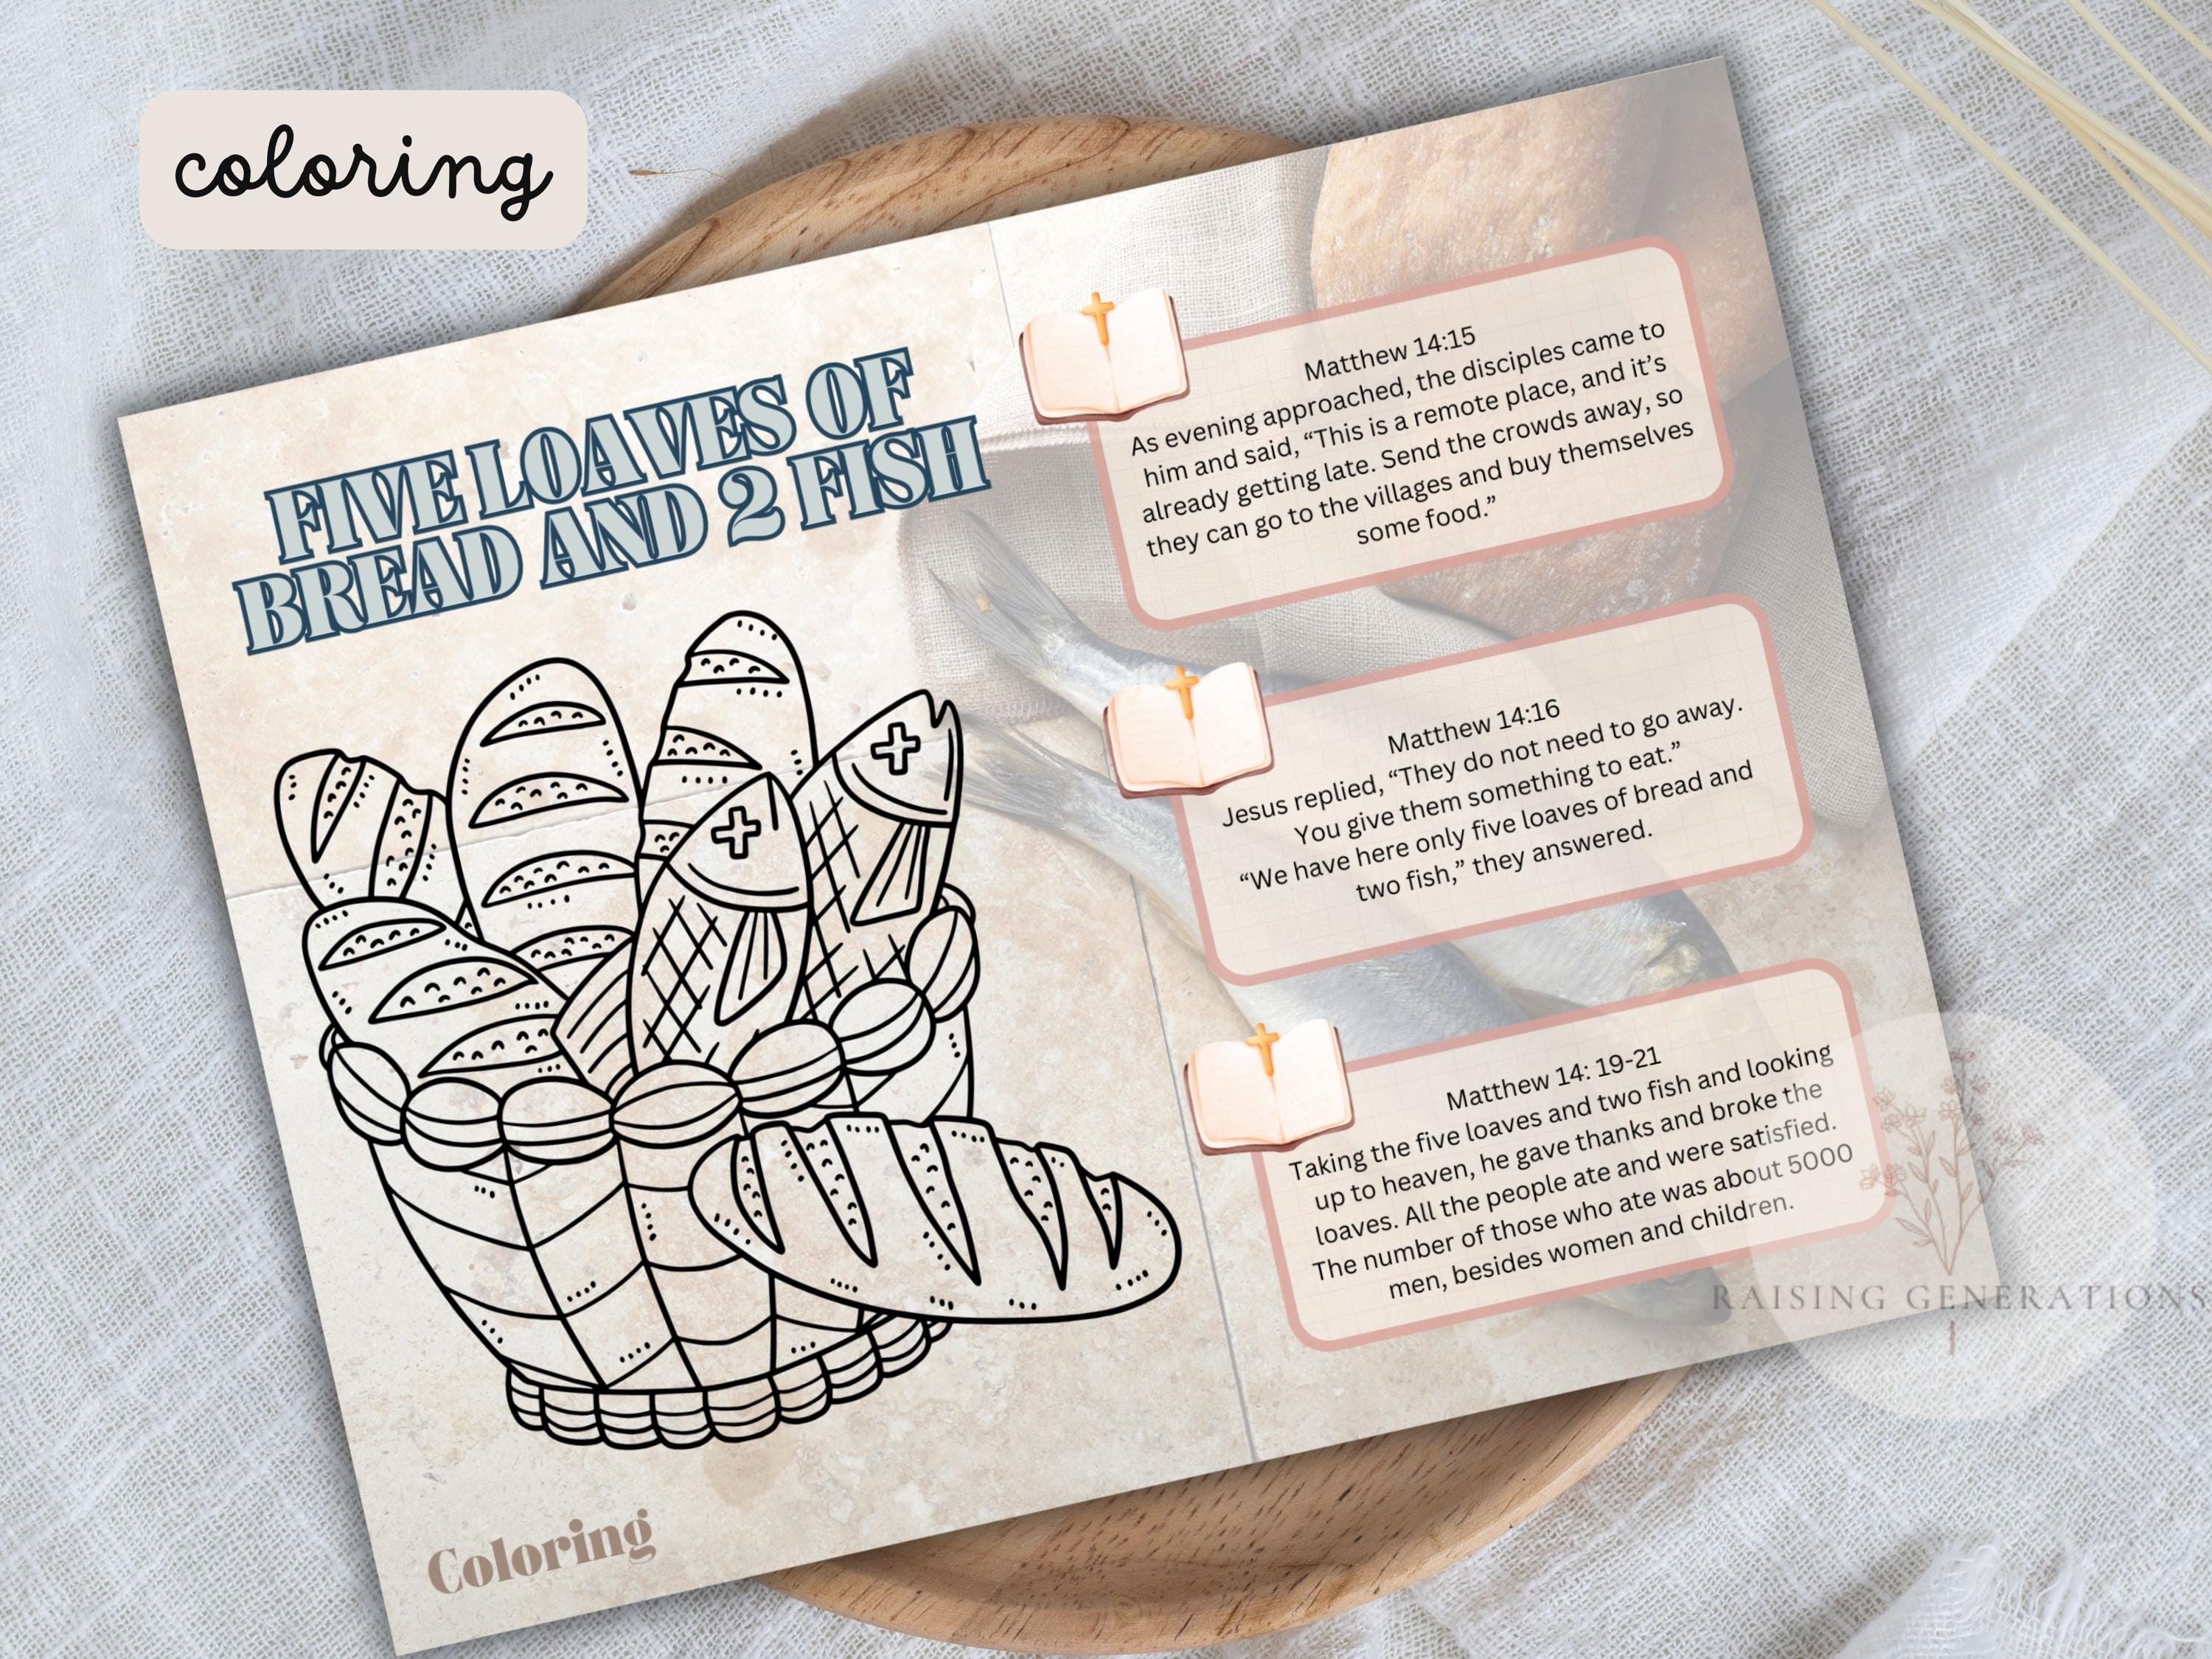 coloring
FIVE LOAVES OF
BREAD AND 2 FISH
Coloring
Matthew 14:15
As evening approached, the disciples came to
him and said, “This is a remote place, and it’s
already getting late. Send the crowds away, so
they can go to the villages and buy themselves
some food.”
Matthew 14:16
Jesus replied, “They do not need to go away.
You give them something to eat.”
“We have here only five loaves of bread and
two fish,” they answered.
Matthew 14: 19-21
Taking the five loaves and two fish and looking
up to heaven, he gave thanks and broke the
loaves. All the people ate and were satisfied.
The number of those who ate was about 5000
men, besides women and children.
RAISING GENERATIONS